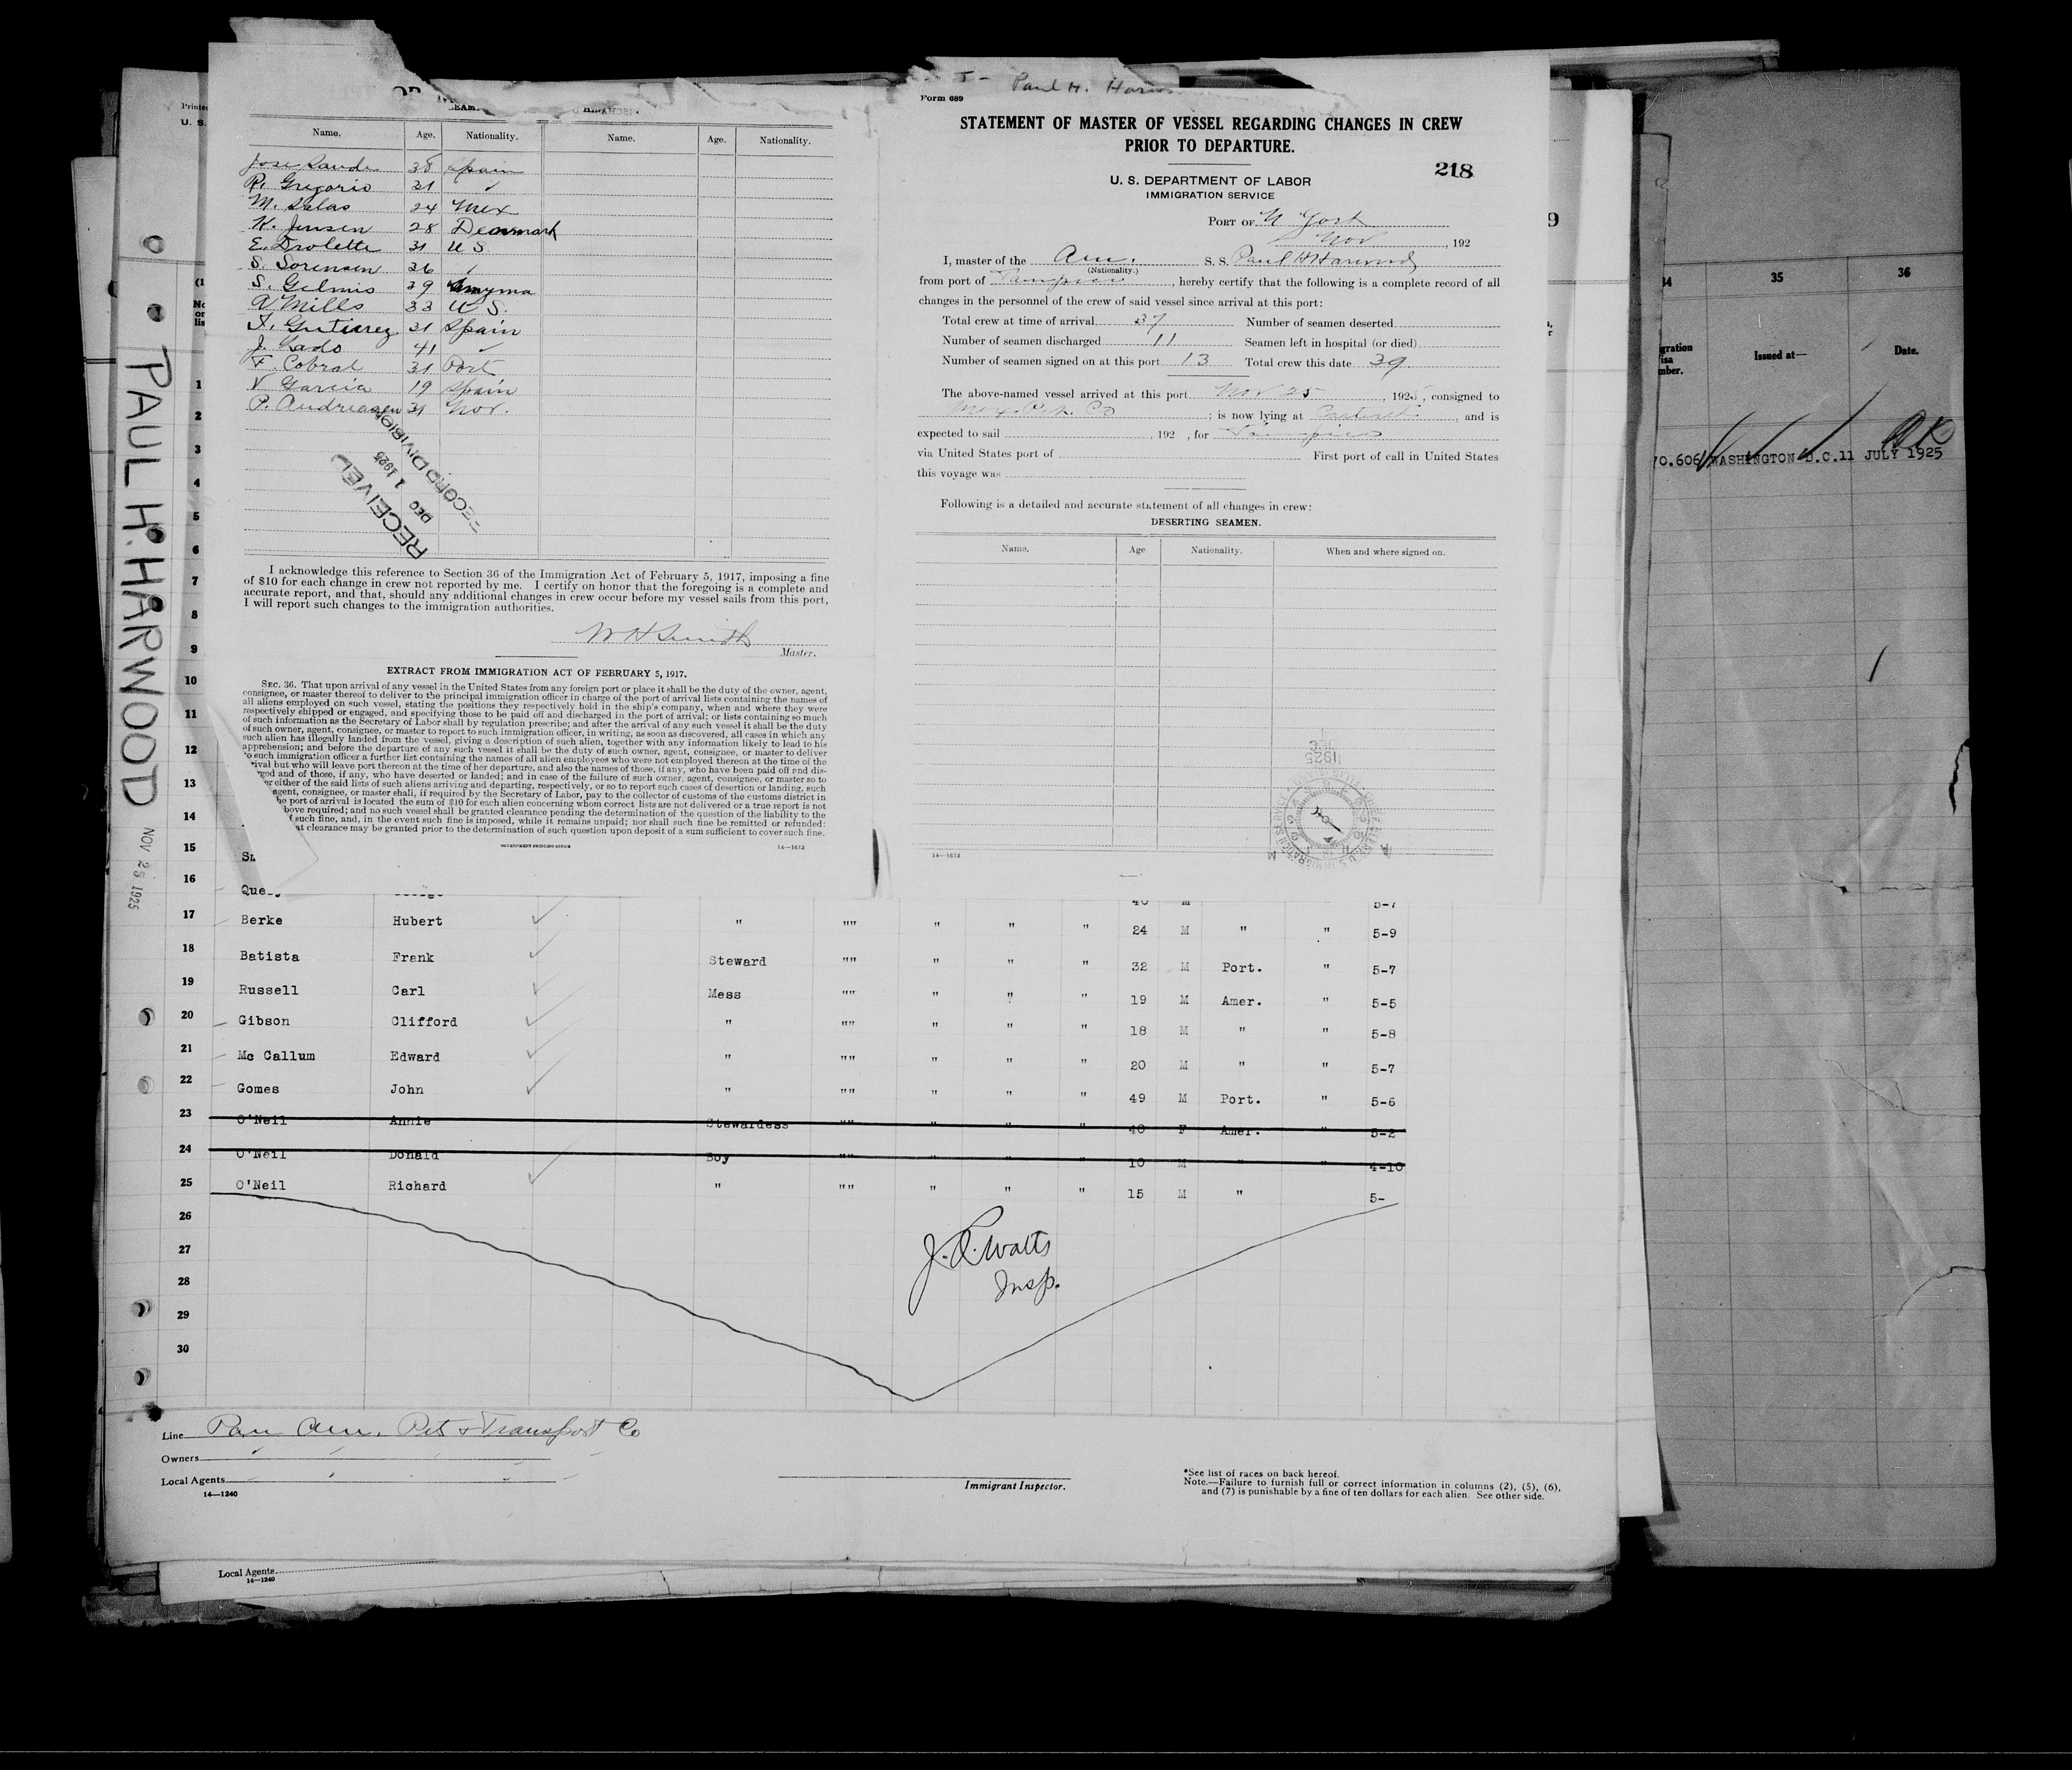 PAUL H. HARWOOD NOV 25 1925
Name. Age. Nationality. Name. Age. Nationality.
38 Spain
R. Gregorio 31 "
M. Salas 24 Mex
K. Jensen 28 Denmark
E. Drolette 31 U S.
S. Sorensen 26 "
S. Gelmis 39 Smyrna
A Mills 33 U S.
F. Gutierrez 31 Spain
J. Gado 41 "
F. Cobral 31 Port
V Garcia 19 Spain
P. Andreasen 31 Nor.
RECEIVED
DEC 1 1925
RECORD DIVISION
I acknowledge this reference to Section 36 of the Immigration Act of February 5, 1917, imposing a fine
of $10 for each change in crew not reported by me. I certify on honor that the foregoing is a complete and
accurate report, and that, should any additional changes in crew occur before my vessel sails from this port,
I will report such changes to the immigration authorities.
W H Smith
Master.
EXTRACT FROM IMMIGRATION ACT OF FEBRUARY 5, 1917.
SEC. 36. That upon arrival of any vessel in the United States from any foreign port or place it shall be the duty of the owner, agent,
consignee, or master thereof to deliver to the principal immigration officer in charge of the port of arrival lists containing the names of
all aliens employed on such vessel, stating the positions they respectively hold in the ship's company, when and where they were
respectively shipped or engaged, and specifying those to be paid off and discharged in the port of arrival; or lists containing so much
of such information as the Secretary of Labor shall by regulation prescribe; and after the arrival of any such vessel it shall be the duty
of such owner, agent, consignee, or master to report to such immigration officer, in writing, as soon as discovered, all cases in which any
such alien has illegally landed from the vessel, giving a description of such alien, together with any information likely to lead to his
apprehension; and before the departure of any such vessel it shall be the duty of such owner, agent, consignee, or master to deliver
to such immigration officer a further list containing the names of all alien employees who were not employed thereon at the time of the
rival but who will leave port thereon at the time of her departure, and also the names of those, if any, who have been paid off and dis-
rged and of those, if any, who have deserted or landed; and in case of the failure of such owner, agent, consignee, or master so to
er either of the said lists of such aliens arriving and departing, respectively, or so to report such cases of desertion or landing, such
agent, consignee, or master shall, if required by the Secretary of Labor, pay to the collector of customs of the customs district in
he port of arrival is located the sum of $10 for each alien concerning whom correct lists are not delivered or a true report is not
bove required; and no such vessel shall be granted clearance pending the determination of the question of the liability to the
f such fine, and, in the event such fine is imposed, while it remains unpaid; nor shall such fine be remitted or refunded:
at clearance may be granted prior to the determination of such question upon deposit of a sum sufficient to cover such fine.
GOVERNMENT PRINTING OFFICE 14—1613
Paul H. Harw
Form 689
STATEMENT OF MASTER OF VESSEL REGARDING CHANGES IN CREW
PRIOR TO DEPARTURE.
218
U. S. DEPARTMENT OF LABOR
IMMIGRATION SERVICE
PORT OF N York
Nov , 192
I, master of the Am. S. S. Paul H Harwood
(Nationality.)
from port of Tampico , hereby certify that the following is a complete record of all
changes in the personnel of the crew of said vessel since arrival at this port:
Total crew at time of arrival 37 Number of seamen deserted
Number of seamen discharged 11 Seamen left in hospital (or died)
Number of seamen signed on at this port 13 Total crew this date 39
The above-named vessel arrived at this port Nov 25 , 1925 , consigned to
Mex. P. Co ; is now lying at Carteret , and is
expected to sail , 192 , for Tampico
via United States port of First port of call in United States
this voyage was
Following is a detailed and accurate statement of all changes in crew:
DESERTING SEAMEN.
Name. Age Nationality. When and where signed on.
14—1613
34 35 36
gration
isa
mber. Issued at— Date.
OK
70.606 WASHINGTON D.C. 11 JULY 1925
Printed
U. S.
1
2
3
4
5
6
7
8
9
10
11
12
13
14
15
16 Que 40 M 5-7
17 Berke Hubert " "" " " " 24 M " " 5-9
18 Batista Frank Steward "" " " " 32 M Port. " 5-7
19 Russell Carl Mess "" " " " 19 M Amer. " 5-5
20 Gibson Clifford " "" " " " 18 M " " 5-8
21 Mc Callum Edward " "" " " " 20 M " " 5-7
22 Gomes John " "" " " " 49 M Port. " 5-6
23 O'Neil Annie Stewardess "" " " " 40 F Amer. " 5-2
24 O'Neil Donald Boy "" " " " 10 M " " 4-10
25 O'Neil Richard " "" " " " 15 M " 5-
26
27
28
29
30
J. R. Watts
Insp.
Line Pan Am. Pet & Transport Co
Owners " " " "
Local Agents " " " "
14—1240
Immigrant Inspector.
*See list of races on back hereof.
Note.—Failure to furnish full or correct information in columns (2), (5), (6),
and (7) is punishable by a fine of ten dollars for each alien. See other side.
Local Agents
14—1240